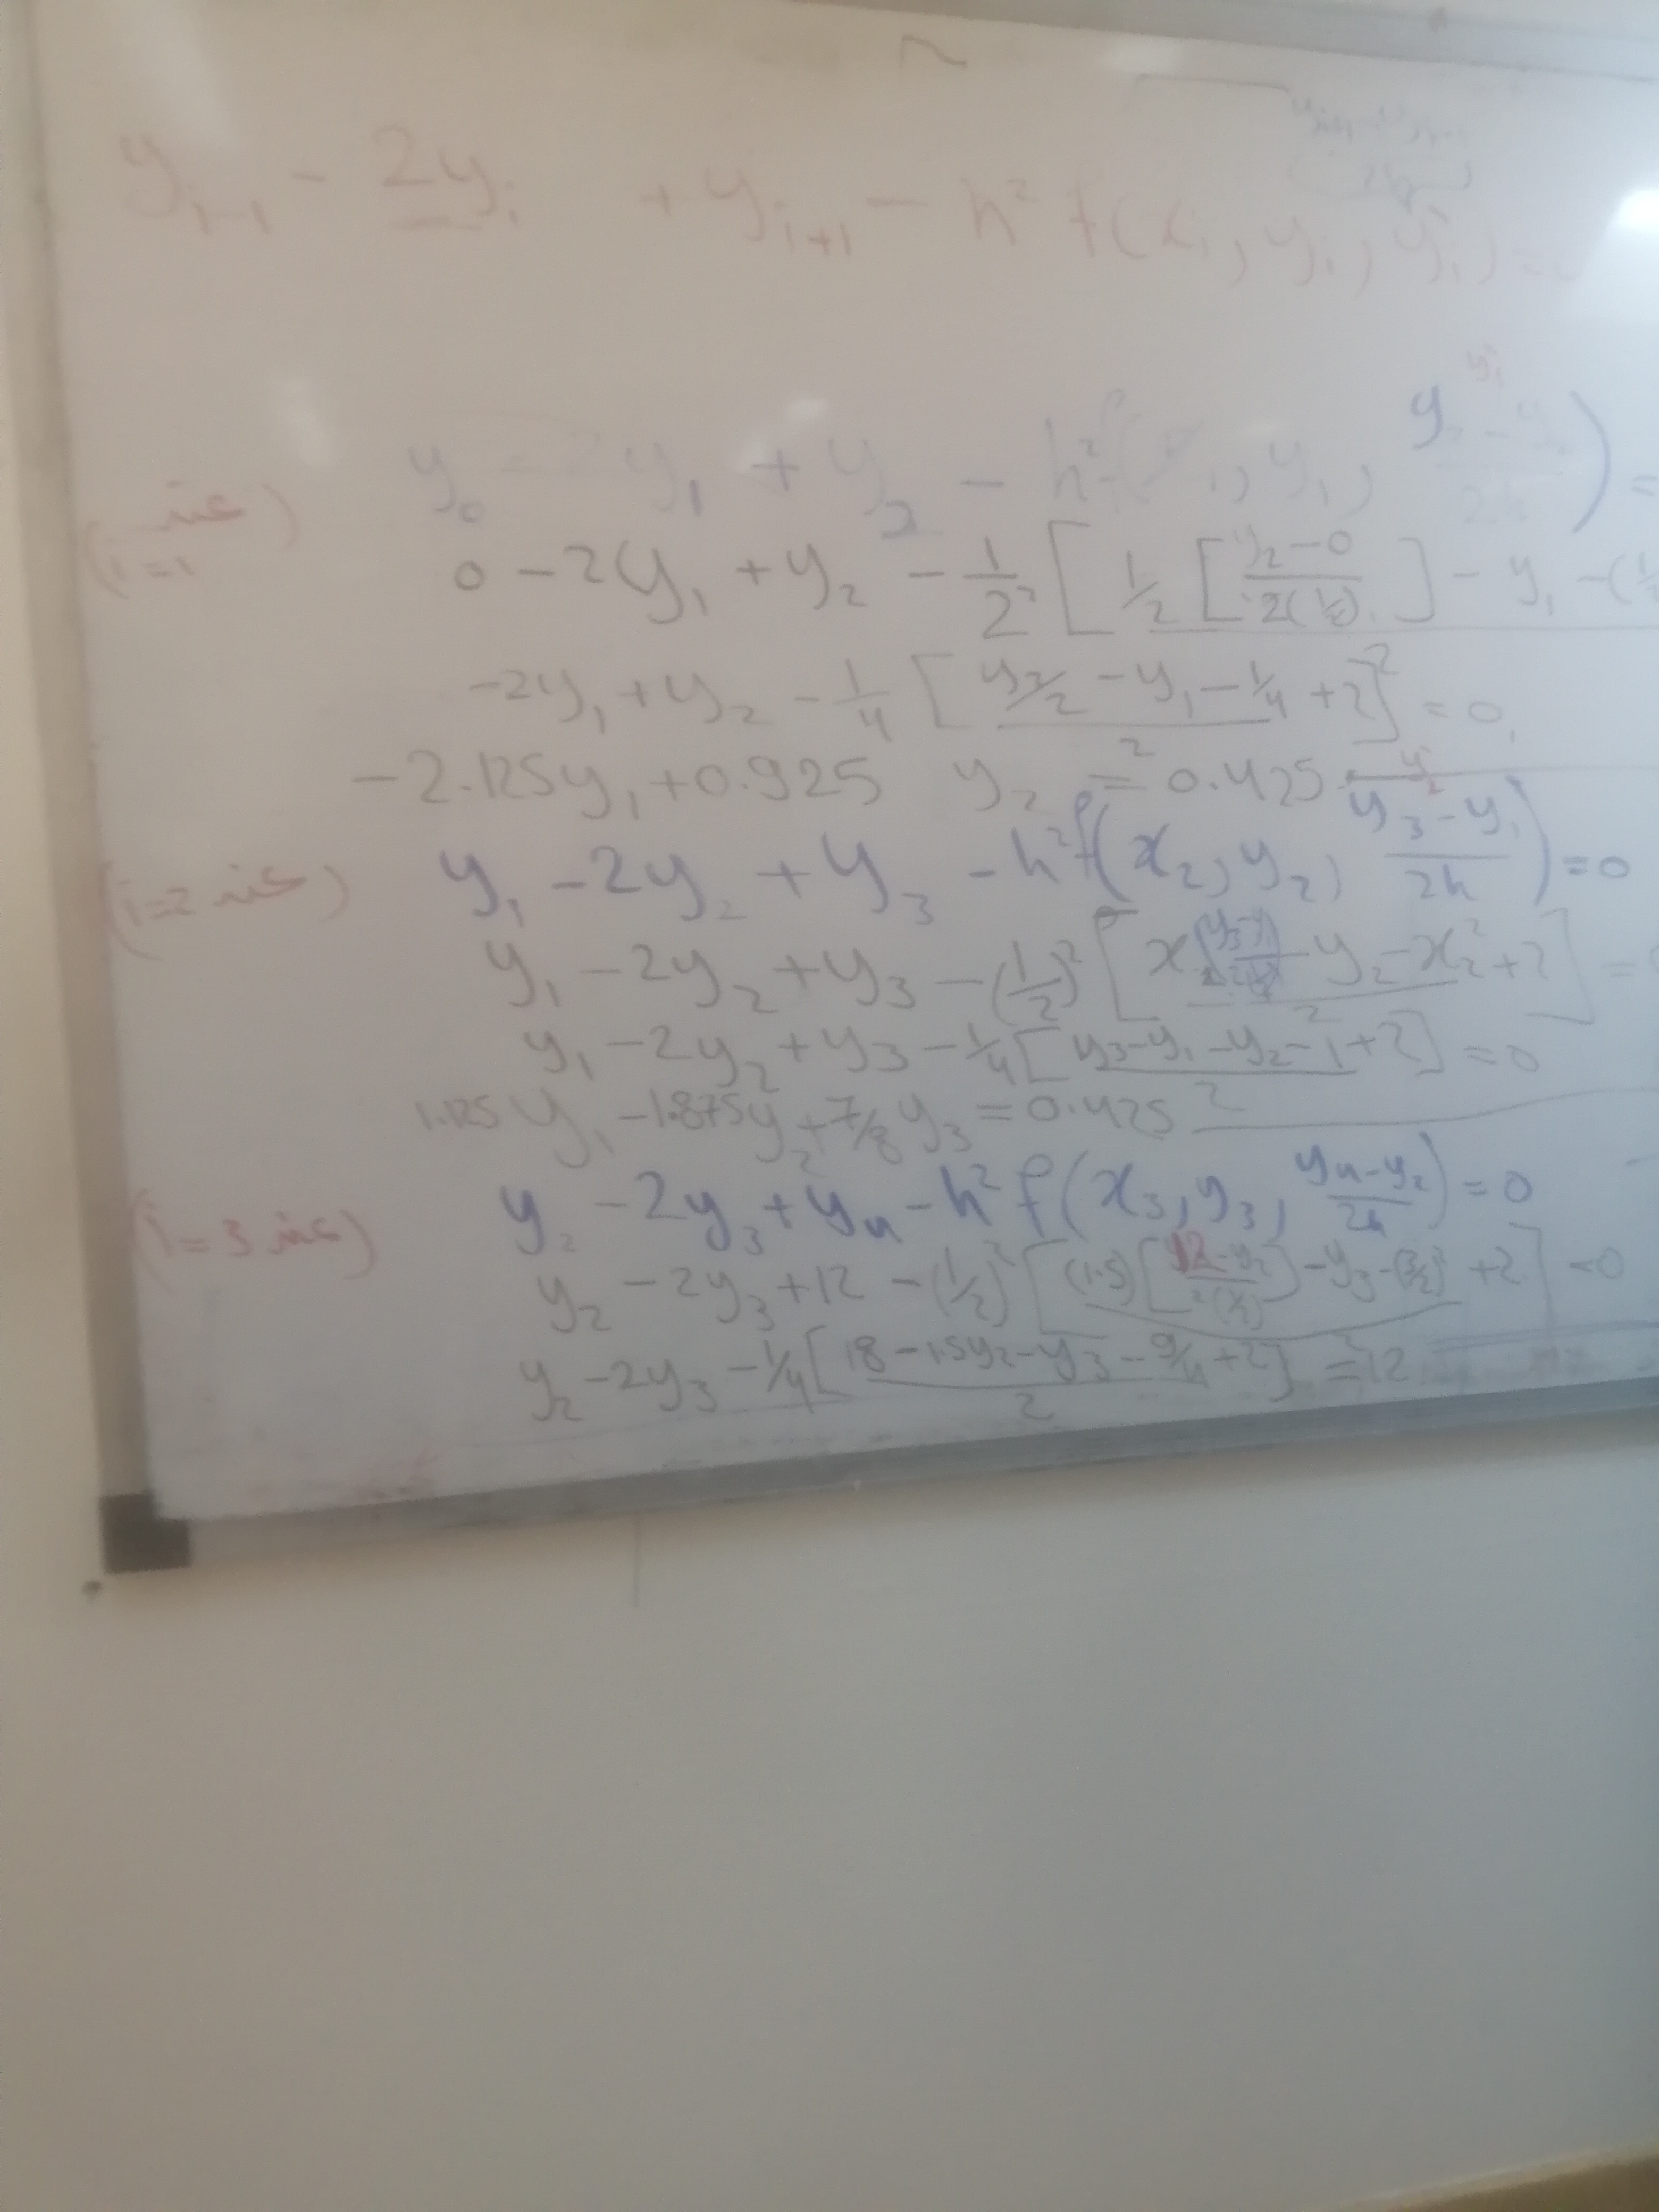 y_{i-1} - 2y_i + y_{i+1} - h² f(x_i, y_i, y'_i) =
(i=1 için) y_0 - 2y_1 + y_2 - h² f( 1, y_1, y ) =
0 - 2y_1 + y_2 - 1/2² [ 1/2 [ (y_2 - 0)/(2(1/2)) ] - y_1 - (1/2
-2y_1 + y_2 - 1/4 [ (y_2/2 - y_1 - 1/4 + 2)/2 ] = 0
-2.125y_1 + 0.925 y_2 = 0.425
(i=2 için) y_1 - 2y_2 + y_3 - h² f(x_2, y_2, (y_3 - y_1)/2h) = 0
y_1 - 2y_2 + y_3 - (1/2)² [ (x - y_2 - x_2² + 2)/2 ] =
y_1 - 2y_2 + y_3 - 1/4 [ (y_3 - y_1 - y_2 - 1 + 2)/2 ] = 0
1.125y_1 - 1.875y_2 + 7/8 y_3 = 0.425
(i=3 için) y_2 - 2y_3 + y_4 - h² f(x_3, y_3, (y_4 - y_2)/2h) = 0
y_2 - 2y_3 + 12 - (1/2)² [ ((1.5) [ (12 - y_2)/(2(1/2)) ] - y_3 - (3/2)² + 2)/2 ] = 0
y_2 - 2y_3 - 1/4 [ (18 - 1.5y_2 - y_3 - 9/4 + 2)/2 ] = 12